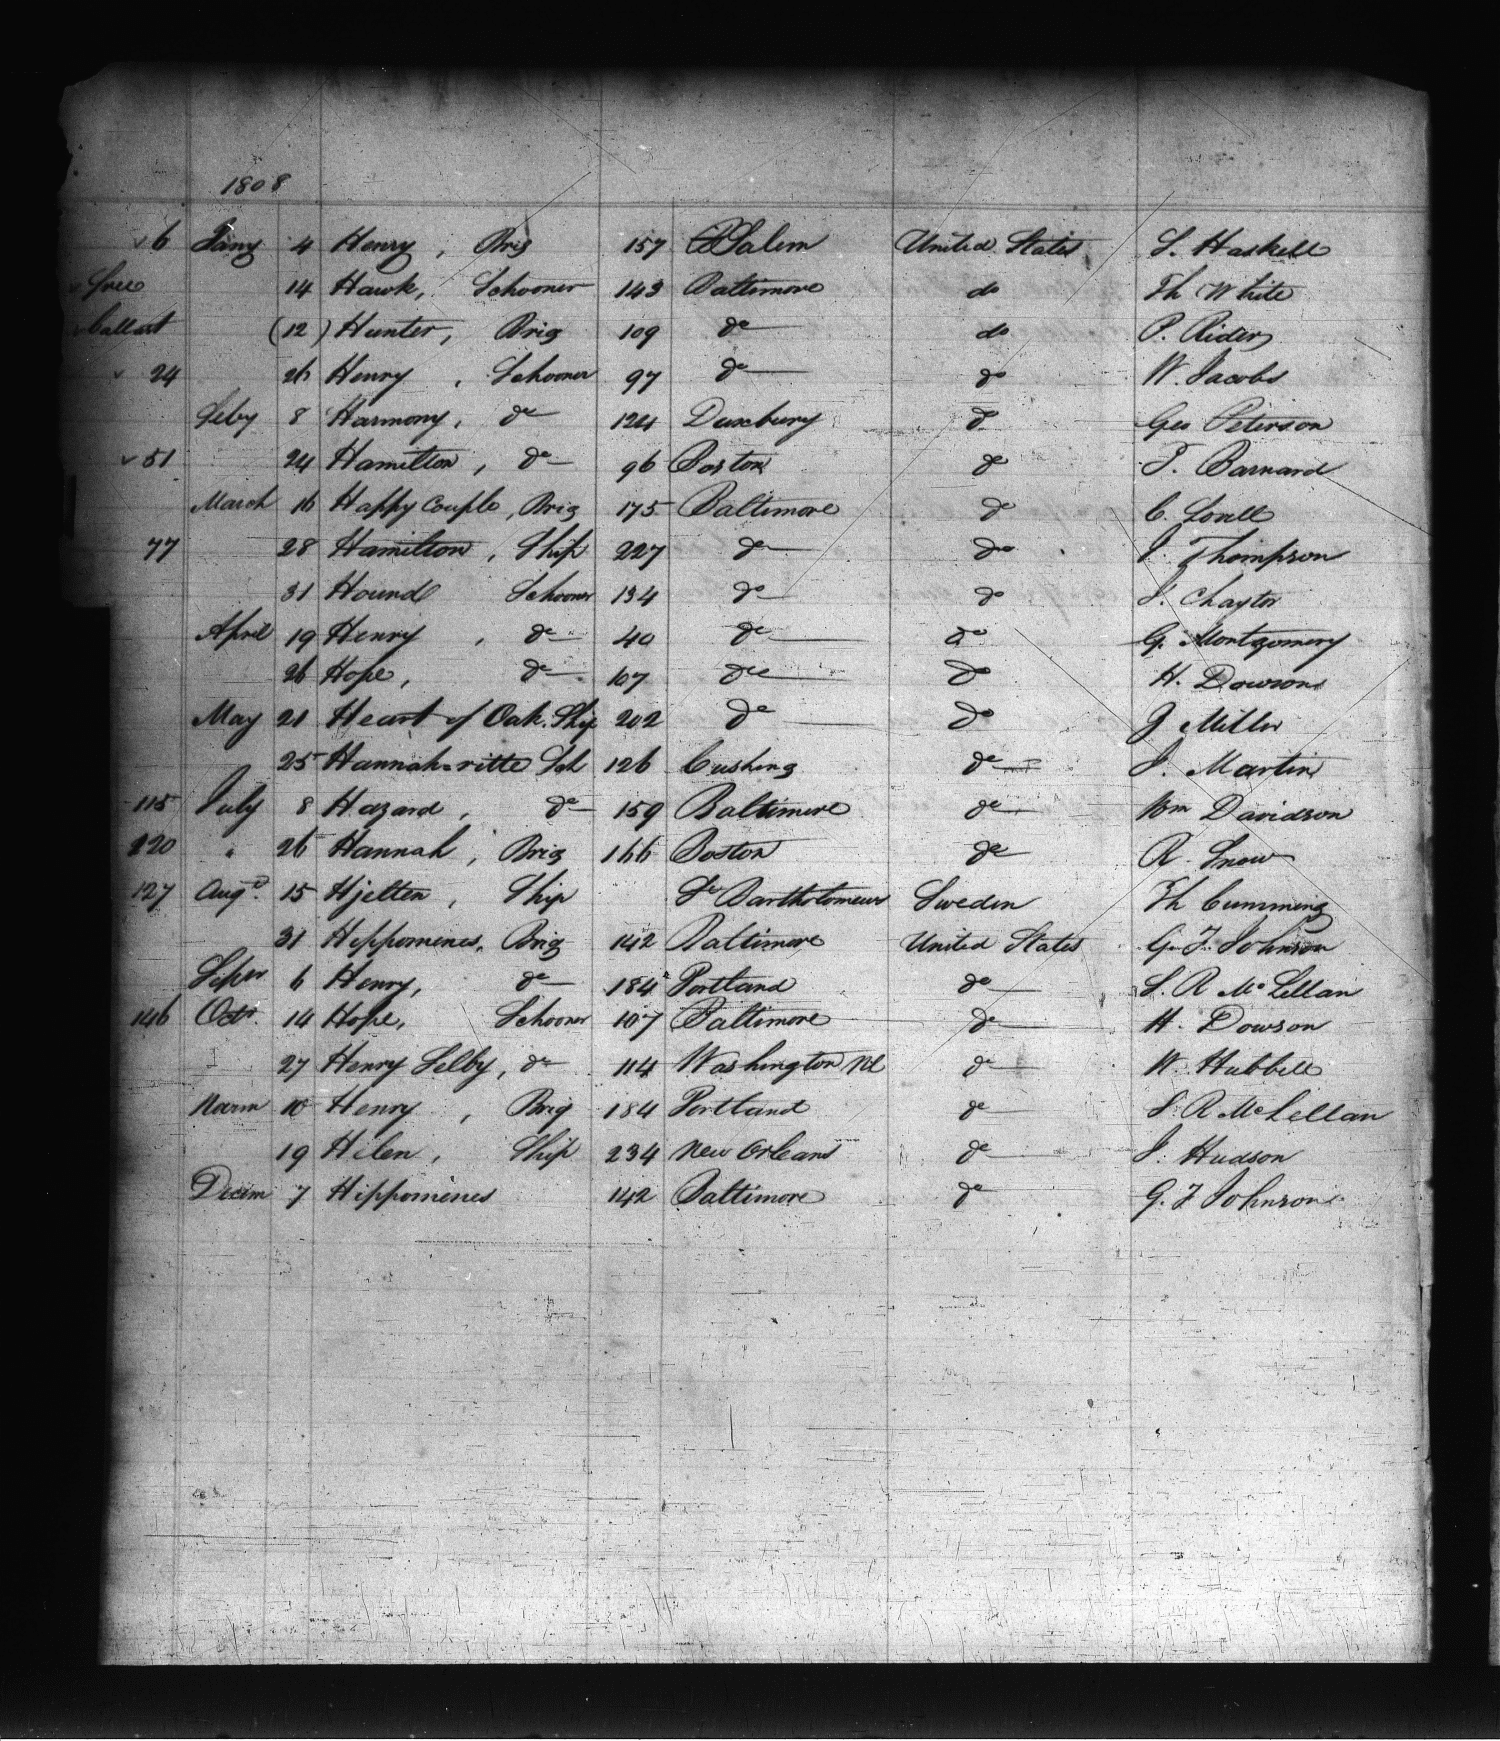 1808
6 Jany 4 Henry, Brig 157 Salem United States S. Haskell
free 14 Hawk, Schooner 143 Baltimore do Th White
ballast (12) Hunter, Brig 109 do do P. Rider
24 26 Henry, Schooner 97 do do W. Jacobs
Feby 8 Harmony, do 124 Duxbury do Geo Peterson
51 24 Hamilton, do 96 Boston do T. Barnard
March 16 Happy Couple, Brig 175 Baltimore do C. Lovell
77 28 Hamilton, Ship 227 do do J. Thompson
31 Hound Schooner 134 do do J. Chaytor
April 19 Henry, do 40 do do G. Montgomery
26 Hope, do 107 do do H. Dowson
May 21 Heart of Oak. Ship 202 do do J Miller
25 Hannah & ritte Sch 126 Cushing do J. Martin
115 July 8 Hazard, do 159 Baltimore do Wm Davidson
120 " 26 Hannah, Brig 166 Boston do R. Snow
127 Augt. 15 Hjelten, Ship St Bartholomeus Sweden Th Cumming
31 Hippomenes, Brig 142 Baltimore United States G. F. Johnson
Sepr 6 Henry, do 184 Portland do S. R McLellan
146 Octr. 14 Hope, Schooner 107 Baltimore do H. Dowson
27 Henry Selby, do 114 Washington Nd do W. Hubbell
Novm 10 Henry, Brig 184 Portland do S. R McLellan
19 Helen, Ship 234 New Orleans do J. Hudson
Decem 7 Hippomenes 142 Baltimore do G. F Johnson